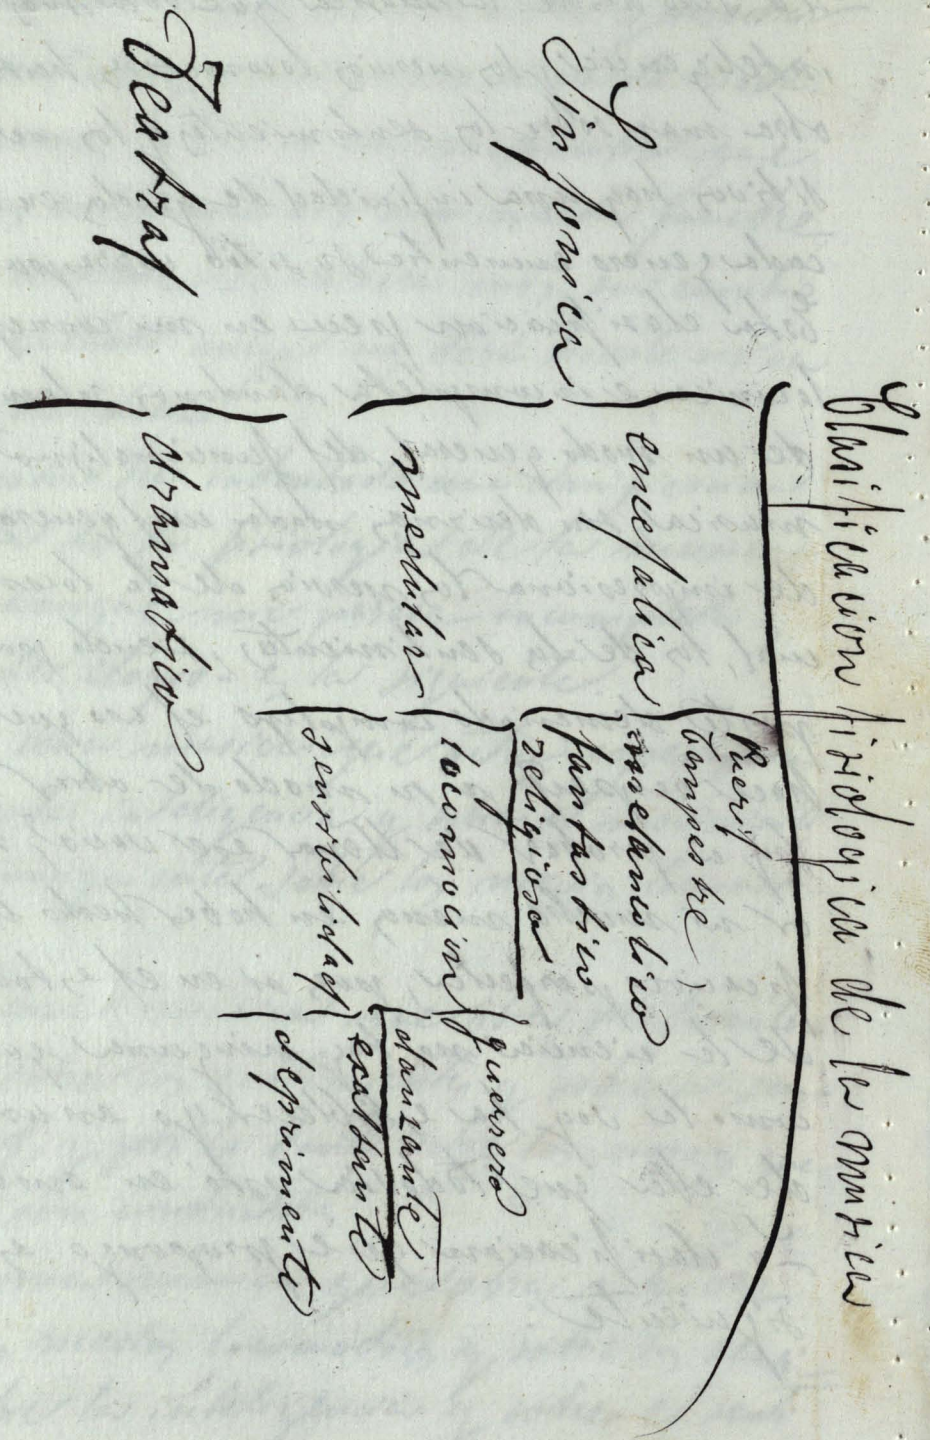 Clasificacion fisiologica de la musica
Sinfonica
encefalica
Pueril
Campestre
melancolico
fantastico
religiosa
medular
locomocion
guerrero
danzante
sensibilidad
exaltante
deprimente
Teatral
dramatico